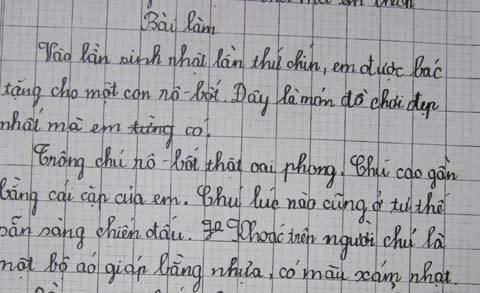 Bài làm
Vào lần sinh nhật lần thứ chín, em được bác
tặng cho một con rô-bốt. Đây là món đồ chơi đẹp
nhất mà em từng có.
Trông chú rô-bốt thật oai phong. Chú cao gần
bằng cái cặp của em. Chú lúc nào cũng ở tư thế
sẵn sàng chiến đấu. Khoác trên người chú là
một bộ áo giáp bằng nhựa, có màu xám nhạt.